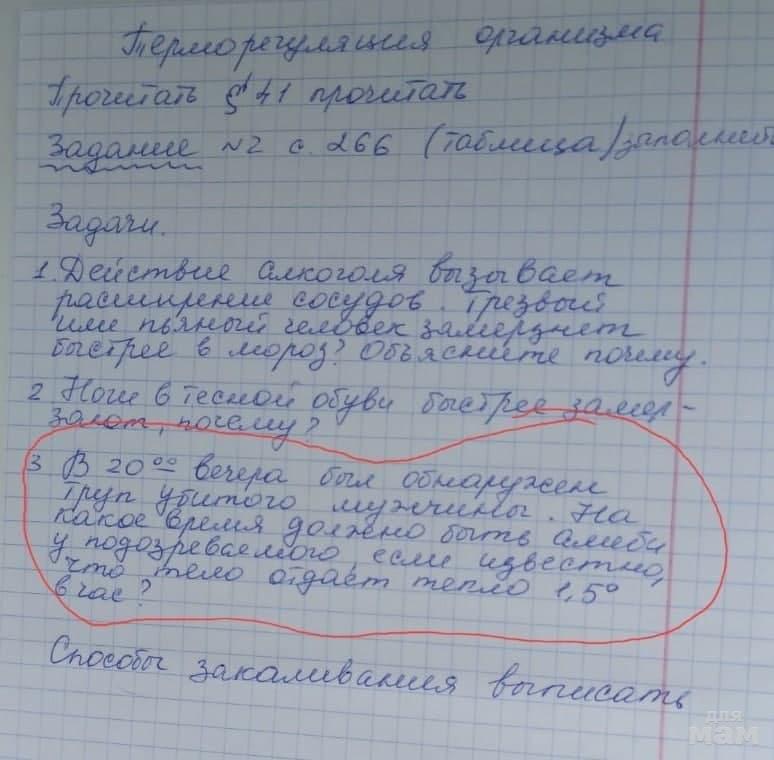 Терморегуляция организма
Прочитать § 41 прочитать
Задание №2 с. 266 (таблица) заполнит
Задачи.
1. Действие алкоголя вызывает
расширение сосудов. Трезвый
или пьяный человек замерзнет
быстрее в мороз? Объясните почему.
2 Ноги в тесной обуви быстрее замер-
зают, почему?
3 В 20⁰⁰ вечера был обнаружен
труп убитого мужчины. На
какое время должно быть алиби
у подозреваемого, если известно,
что тело отдает тепло 1,5°
в час?
Способы закаливания выписать
для
мам